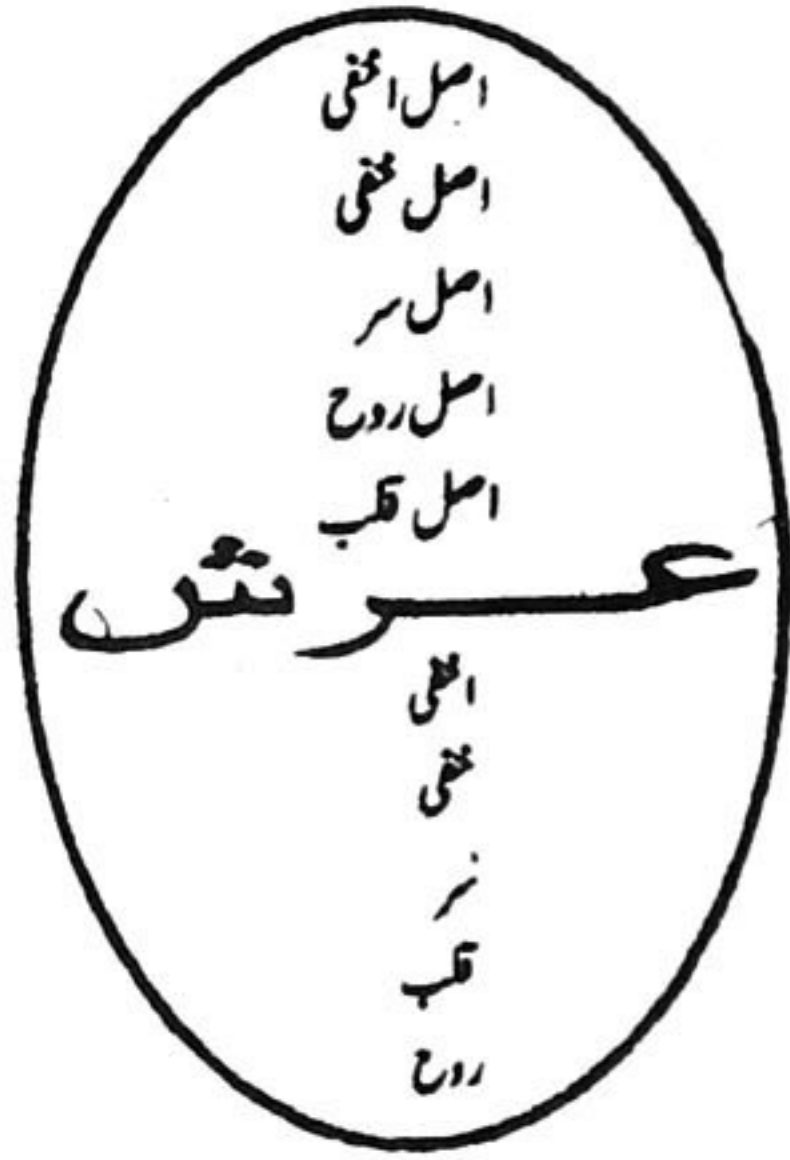 اصل اخفی
اصل خفی
اصل سر
اصل روح
اصل قلب
عرش
اخفی
خفی
سر
قلب
روح